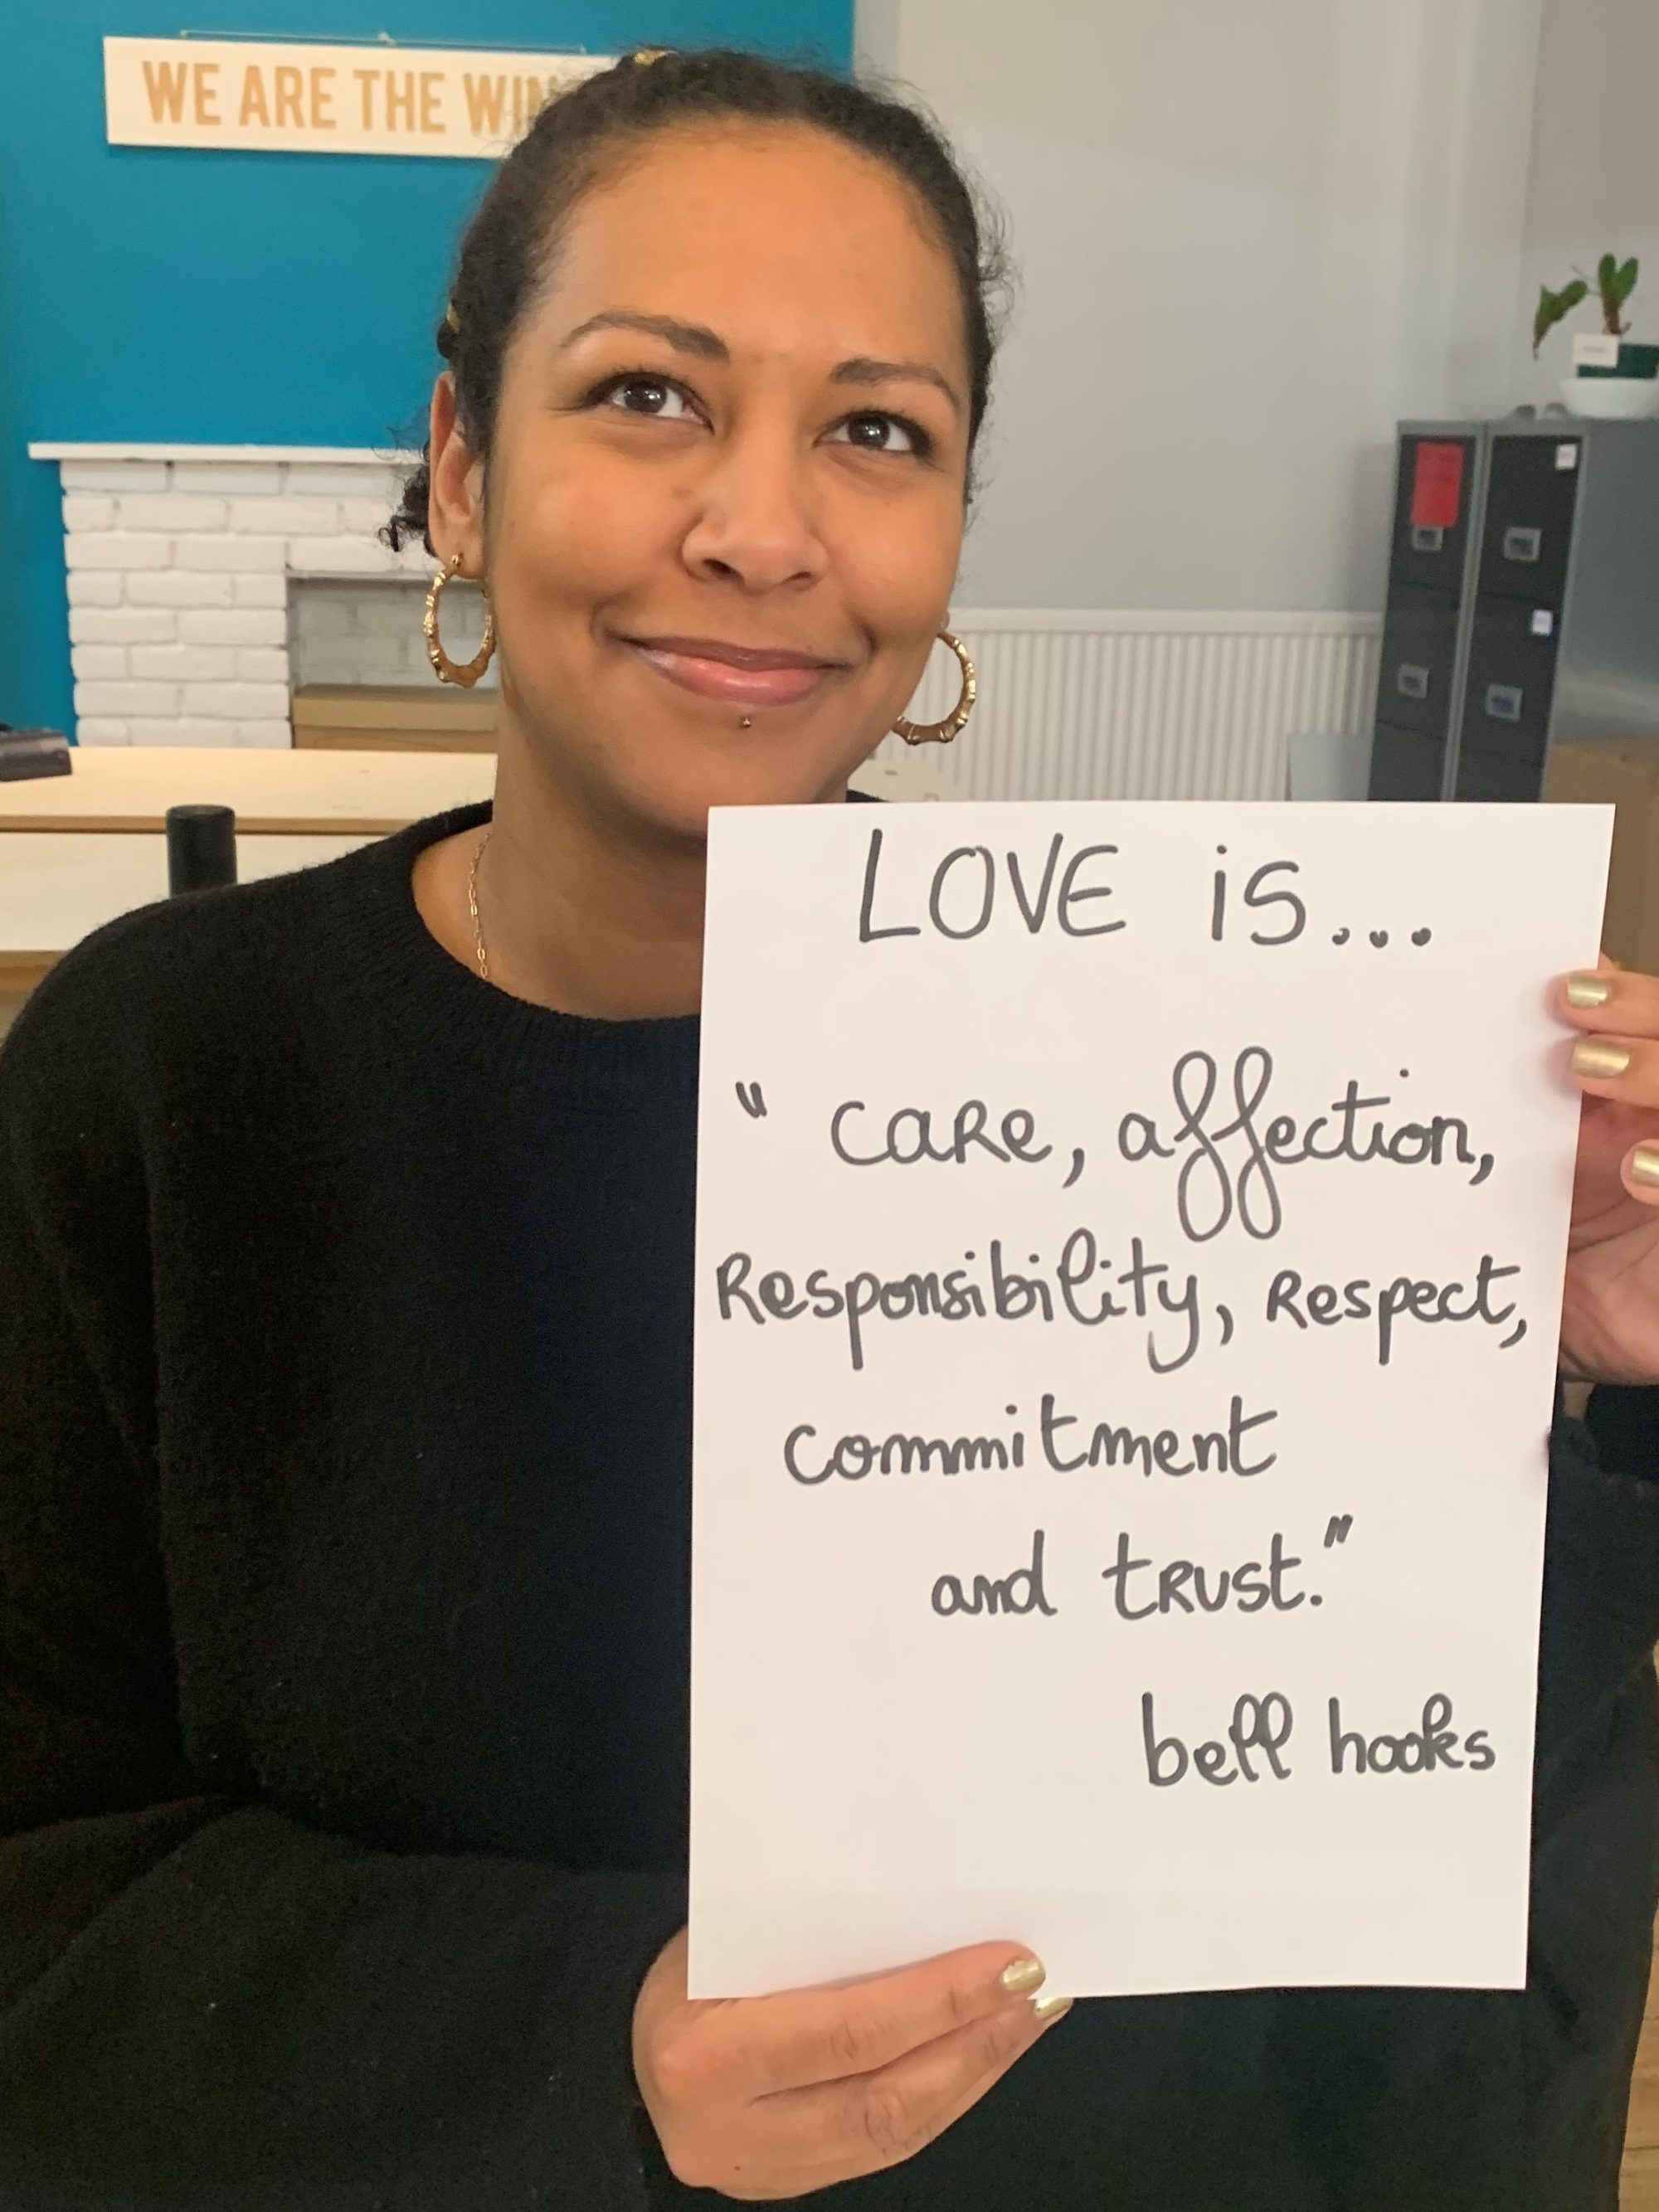 WE ARE THE WIN
LOVE is...
"care, affection,
Responsibility, Respect,
commitment
and trust."
bell hooks